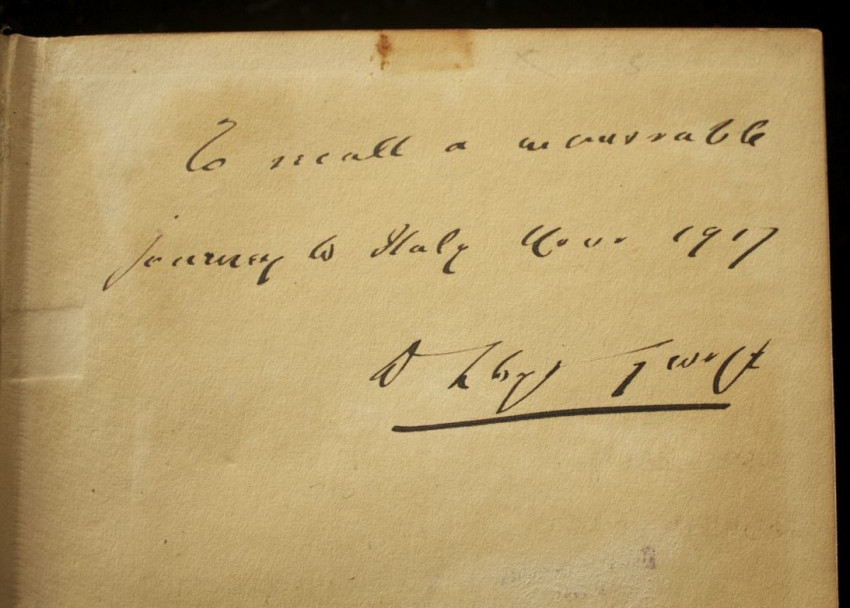 To recall a memorable
journey to Italy Nov. 1917
D Lloyd George